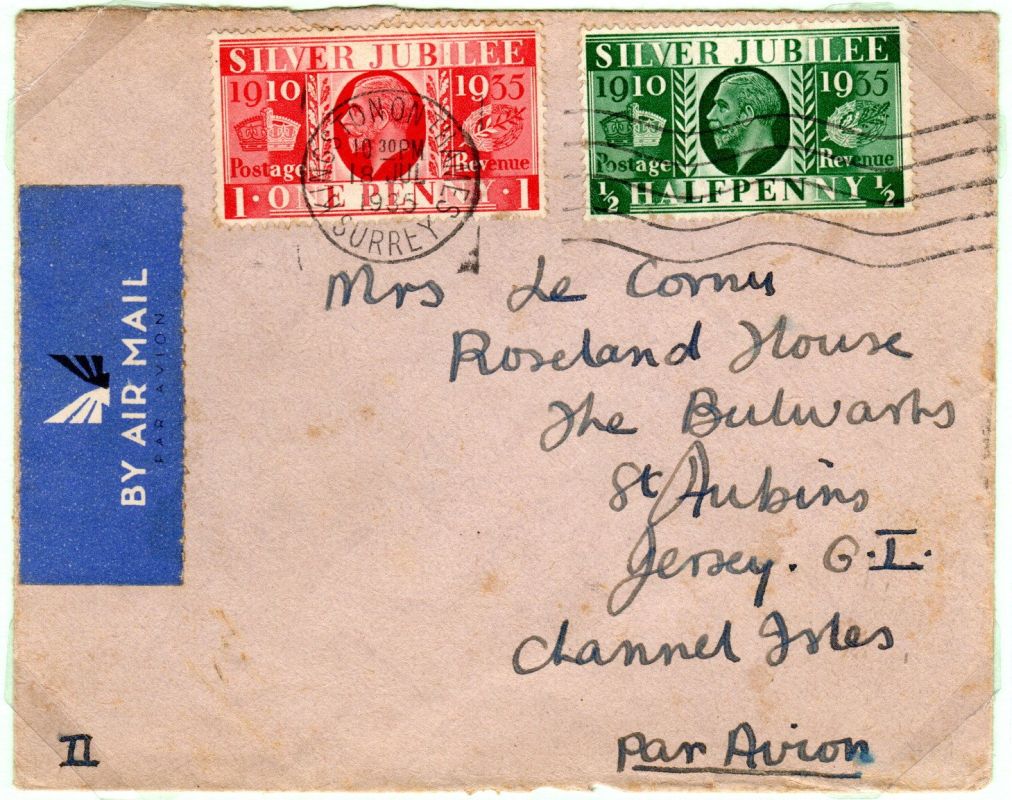 SILVER JUBILEE
1910 1935
Postage Revenue
1 · ONE PENNY · 1
SILVER JUBILEE
1910 1935
Postage Revenue
½ HALFPENNY ½
KINGSTON ON THAMES
10 30PM
18 JUL
1935
SURREY
BY AIR MAIL
PAR AVION
Mrs Le Cornu
Roseland House
The Bulwarks
St Aubins
Jersey. G.I.
Channel Isles
Par Avion
II